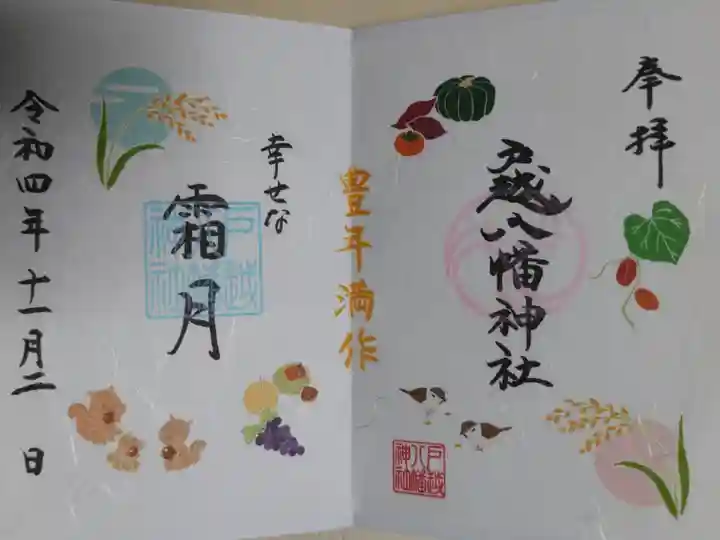 奉拝
戸越八幡神社
豊年満作
幸せな
霜月
令和四年十一月二日
戸越
八幡
神社
戸越
八幡
神社